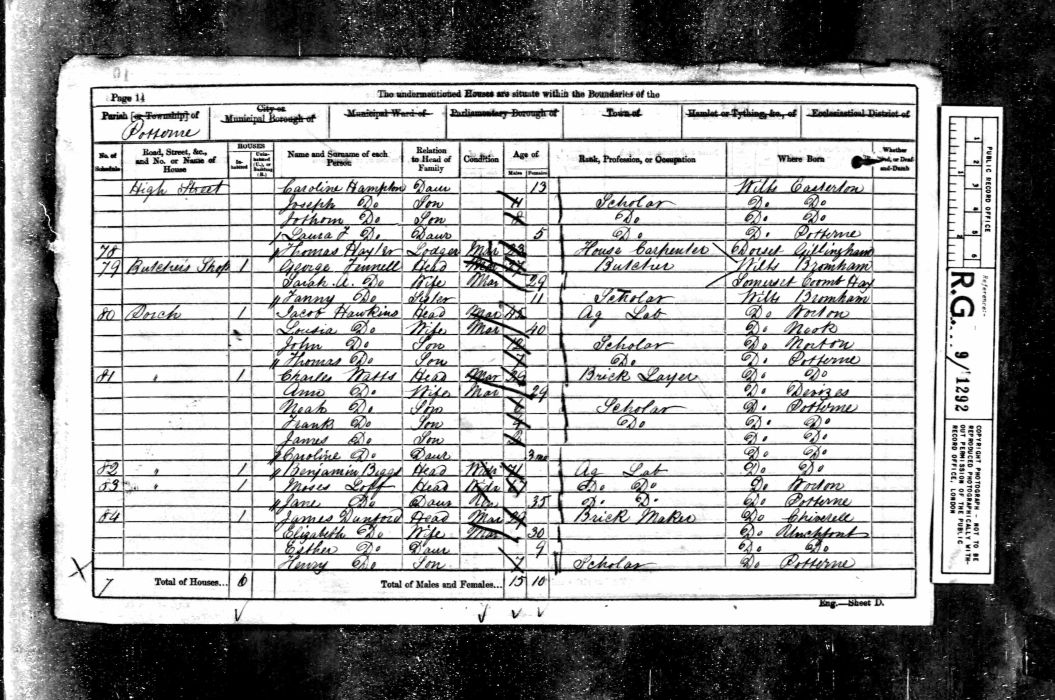 Page 14
The undermentioned Houses are situate within the Boundaries of the
Parish [or Township] of
Potterne
City or Municipal Borough of
Municipal Ward of
Parliamentary Borough of
Town of
Hamlet or Tything, &c., of
Ecclesiastical District of
No. of Schedule
Road, Street, &c., and No. or Name of House
HOUSES
Inhabited
Uninhabited (U.), or Building (B.)
Name and Surname of each Person
Relation to Head of Family
Condition
Age of
Males
Females
Rank, Profession, or Occupation
Where Born
Whether Blind, or Deaf-and-Dumb
High Street Caroline Hampton Daur 13 Wilts Easterton
Joseph Do Son 11 Scholar Do Do
Jothom Do Son 8 Do Do Do
Laura J Do Daur 5 Do Do Potterne
78 Thomas Hayter Lodger Mar 23 House Carpenter Dorset Gillingham
79 Butchers Shop 1 George Fennell Head Mar Butcher Wilts Bromham
Sarah A. Do Wife Mar 29 Somerset Coombt Hay
Fanny Do Sister 11 Scholar Wilts Bromham
80 Porch 1 Jacob Hawkins Head Mar 42 Ag Lab Do Worton
Lousia Do Wife Mar 40 Do
John Do Son 12 Scholar Do Worton
Thomas Do Son Do Do Potterne
81 " 1 Charles Watts Head Mar 29 Brick Layer Do Do
Ann Do Wife Mar 29 Do Devizes
Neah Do Son 6 Scholar Do Potterne
Frank Do Son 4 Do Do Do
James Do Son 2 Do Do
Caroline Do Daur 3 mo Do Do
82 " 1 Benjamin Biggs Head Widr 71 Ag Lab Do Do
83 " 1 Moses Goff Head Widr 67 Do Do Do Worton
Jane Do Daur Un 35 Do Do Do Potterne
84 1 James Dunford Head Mar 29 Brick Maker Do Chiverell
Elizabeth Do Wife Mar 30 Do Urchfont
Esther Do Daur 9 Do Do
Henry Do Son 7 Scholar Do Potterne
7 Total of Houses... 6 Total of Males and Females... 15 10
Eng.—Sheet D.
PUBLIC RECORD OFFICE
1 2 3 4 5 6
Reference:-
R.G. 9/1292
COPYRIGHT PHOTOGRAPH - NOT TO BE REPRODUCED PHOTOGRAPHICALLY WITHOUT PERMISSION OF THE PUBLIC RECORD OFFICE, LONDON